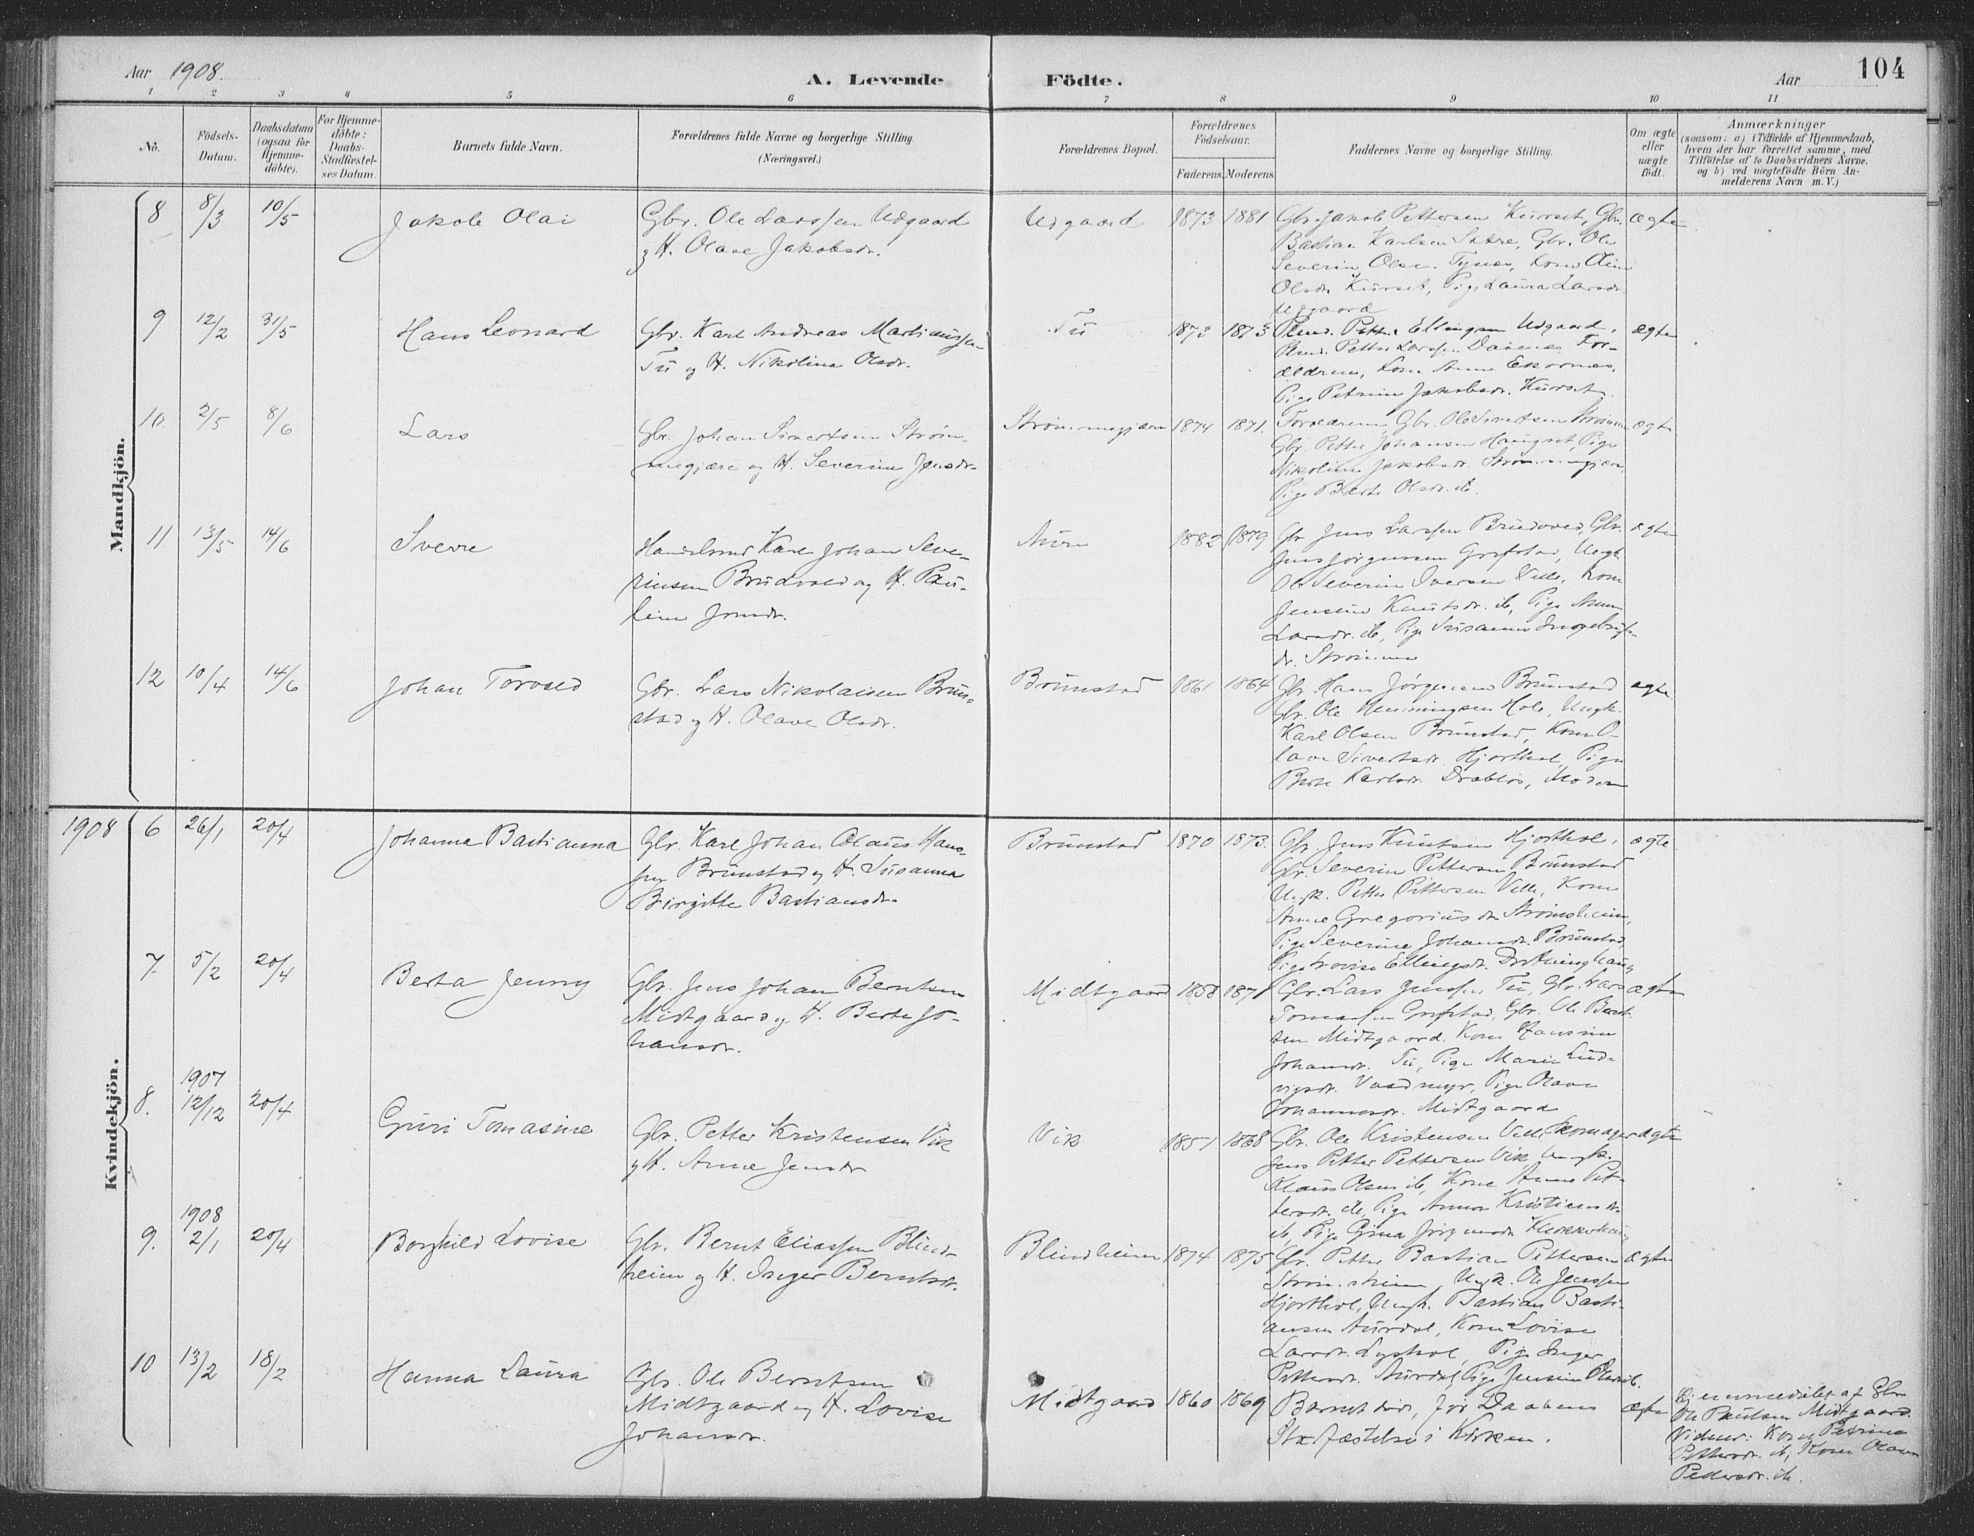 Aar 1908.
A. Levende Födte.
Aar
104
1 2 3 4 5 6 7 8 9 10 11
No.
Födsels-Datum.
Daabsdatum (ogsaa for Hjemme-döbte).
For Hjemme-döbte: Daabs-Stadfæstel-ses Datum.
Barnets fulde Navn.
Forældrenes fulde Navne og borgerlige Stilling.
(Næringsvei.)
Forældrenes Bopæl.
Forældrenes Födselsaar.
Faderens. Moderens.
Faddernes Navne og borgerlige Stilling.
Om ægte eller uægte födt.
Anmærkninger
(saasom: a) i Tilfælde af Hjemmedaab,
hvem der har forrettet samme, med
Tilföielse af to Daabsvidners Navne.
og b) ved uægtefödte Börn An-
melderens Navn m. V.)
Mandkjön.
8 8/3 10/5 Jakole Olai
Gbr. Ole Larssen Udgaard
og H. Olave Jakobsdr.
Udgaard 1873 1881
Gbr. Jakob Pettersen Kurset, Gbr.
Bastian Karlsen Sætre, Gbr. Ole
Severin Olsen Tynes, Kone
Olsdr. Kurset, Pige Laura Larsdr.
Udgaard
ægte
9 12/2 31/5 Hans Leonard
Gbr. Karl Andreas Martinussen
Tu og H. Nikoline Olsdr.
Tu 1873 1873
Petter Ellingsen Udgaard,
Petter Larssen For-
ældrene, Kone Anne Ekornæs,
Pige Petrine Jakobsdr. Kurset
ægte
10. 2/5 8/6 Lars
Gbr. Johan Sivertsen Strøm-
megjære og H. Severine Jensdr.
Strømmegjære 1874 1871.
Forældrene, Gbr. Ole Sivertsen Strømm
Gbr. Petter Johansen Haugset, Pige
Nikoline Jakobsdr. Strømmegjære,
Pige Berte Olsdr. ib.
ægte
11 13/5 14/6 Sverre
Handelsmd Karl Johan Seve-
rinsen Brudvold og H. Pau-
line Jonsdr.
Aure 1882 1879
Gbr. Jens Larssen Brudevold, Gbr.
Jens Jørgensen Grøfstad, Ungk.
Ole Severin Iversen Velle, Kone
Jensine Knutsdr. ib, Pige Anna
Larsdr. ib, Pige Susanne Ingebrigts-
dr. Strømmen
ægte
12 10/4 14/6 Johan Torvald
Gbr. Lars Nikolaisen Brun-
stad og H. Olave Olsdr.
Brunstad 1861 1864
Gbr. Hans Jørgensen Brunstad
Gbr. Ole Henningsen Hole, Ungk.
Karl Olsen Brunstad, Kone O-
lave Sivertsdr. Hjorthol, Pige
Berte Karlsdr. Drabløs, Moderen
ægte
Kvindekjön.
1908 6 26/1 20/4 Johanna Bastianna
Gbr. Karl Johan Olaus Hans-
sen Brunstad og H. Susanna
Birgitte Bastiansdr.
Brunstad 1870 1873.
Gbr. Jens Knutsen Hjorthol,
Gbr. Severin Pettersen Brunstad
Ungk. Petter Pettersen Velle, Kone
Anne Gregoriusdr. Strømsheim,
Pige Severine Johansdr. Brunstad,
Pige Lovise Ellingsdr. Dronninghaug
ægte
7. 5/2 20/4 Berta Jenny
Gbr. Jens Johan Berntsen
Midtgaard og H. Berte Jo-
hansdr.
Midtgaard 1858 1871
Gbr. Lars Jenssen Tu, Gbr. Lars
Tomassen Grøfstad, Gbr. Ole Bernt-
sen Midtgaard, Kone Hansine
Johansdr. Tu, Pige Marie Lud-
vigsdr. Vaadmyr, Pige Olave
Johannesdr. Midtgaard
ægte
1907
8. 12/12 20/4 Guri Tomasine
Gbr. Petter Kristensen Vik
og H. Anne Jensdr
Vik 1851 1868
Gbr. Ole Kristensen Velle, Skomager
Jens Petter Pettersen Vik, Ungk.
Klaus Olsen ib, Kone Anne Pet-
tersdr. ib, Pige Anna Kristiansdr.
ib, Pige Gina Jørgensdr.
ægte
1908
9. 2/1 20/4 Borghild Lovise
Gbr. Bernt Eliassen Blind-
heim og H. Inger Berntsdr.
Blindheim 1874 1875
Gbr. Petter Bastian Pettersen
Strømsheim, Ungk. Ole Jenssen
Hjorthol, Ungk. Bastian Basti-
ansen Aurdal, Kone Lovise
Larsdr. Lyshol, Pige Inger
Pettersdr. Aurdal, Pige Jensine Olsdr. ib.
ægte
10 13/2 18/2 Hanna Laura
Gbr. Ole Berntsen
Midtgaard og H. Lovise
Johansdr.
Midtgaard 1860 1869
Barnet død før Daabens
Stadfæstelse i Kirken.
ægte
Hjemmedøbt af Gbr.
Ole Paulsen Midtgaard.
Vidner: Kone Petrine
Pettersdr. ib, Kone Olave
Pedersdr. ib.